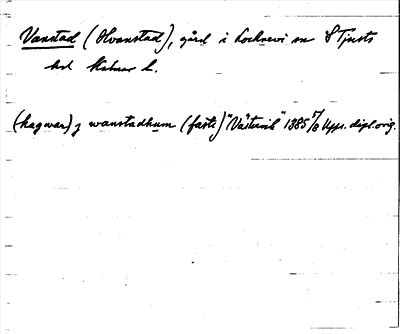 Vanstad (Hvanstad), gård i Locknevi sn S Tjusts
hd Kalmar l.
(hagwar) j wanstadhum (faste) "Västervik" 1385 Upps. dipl. orig.